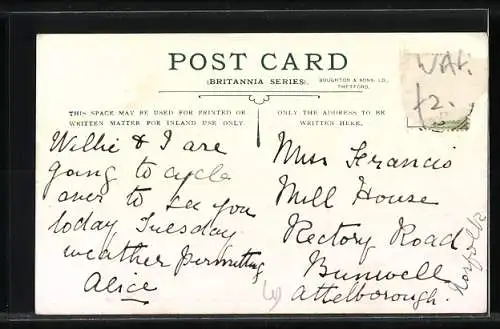 POST CARD
(BRITANNIA SERIES).
BOUGHTON & SONS, LD.,
THETFORD.
THIS SPACE MAY BE USED FOR PRINTED OR
WRITTEN MATTER FOR INLAND USE ONLY.
ONLY THE ADDRESS TO BE
WRITTEN HERE.
WAF.
£2.
Willie & I are
going to cycle
over to see you
today Tuesday
weather permitting
Alice
Miss Francis
Mill House
Rectory Road
Bunwell
Attelborough.
Norfolk